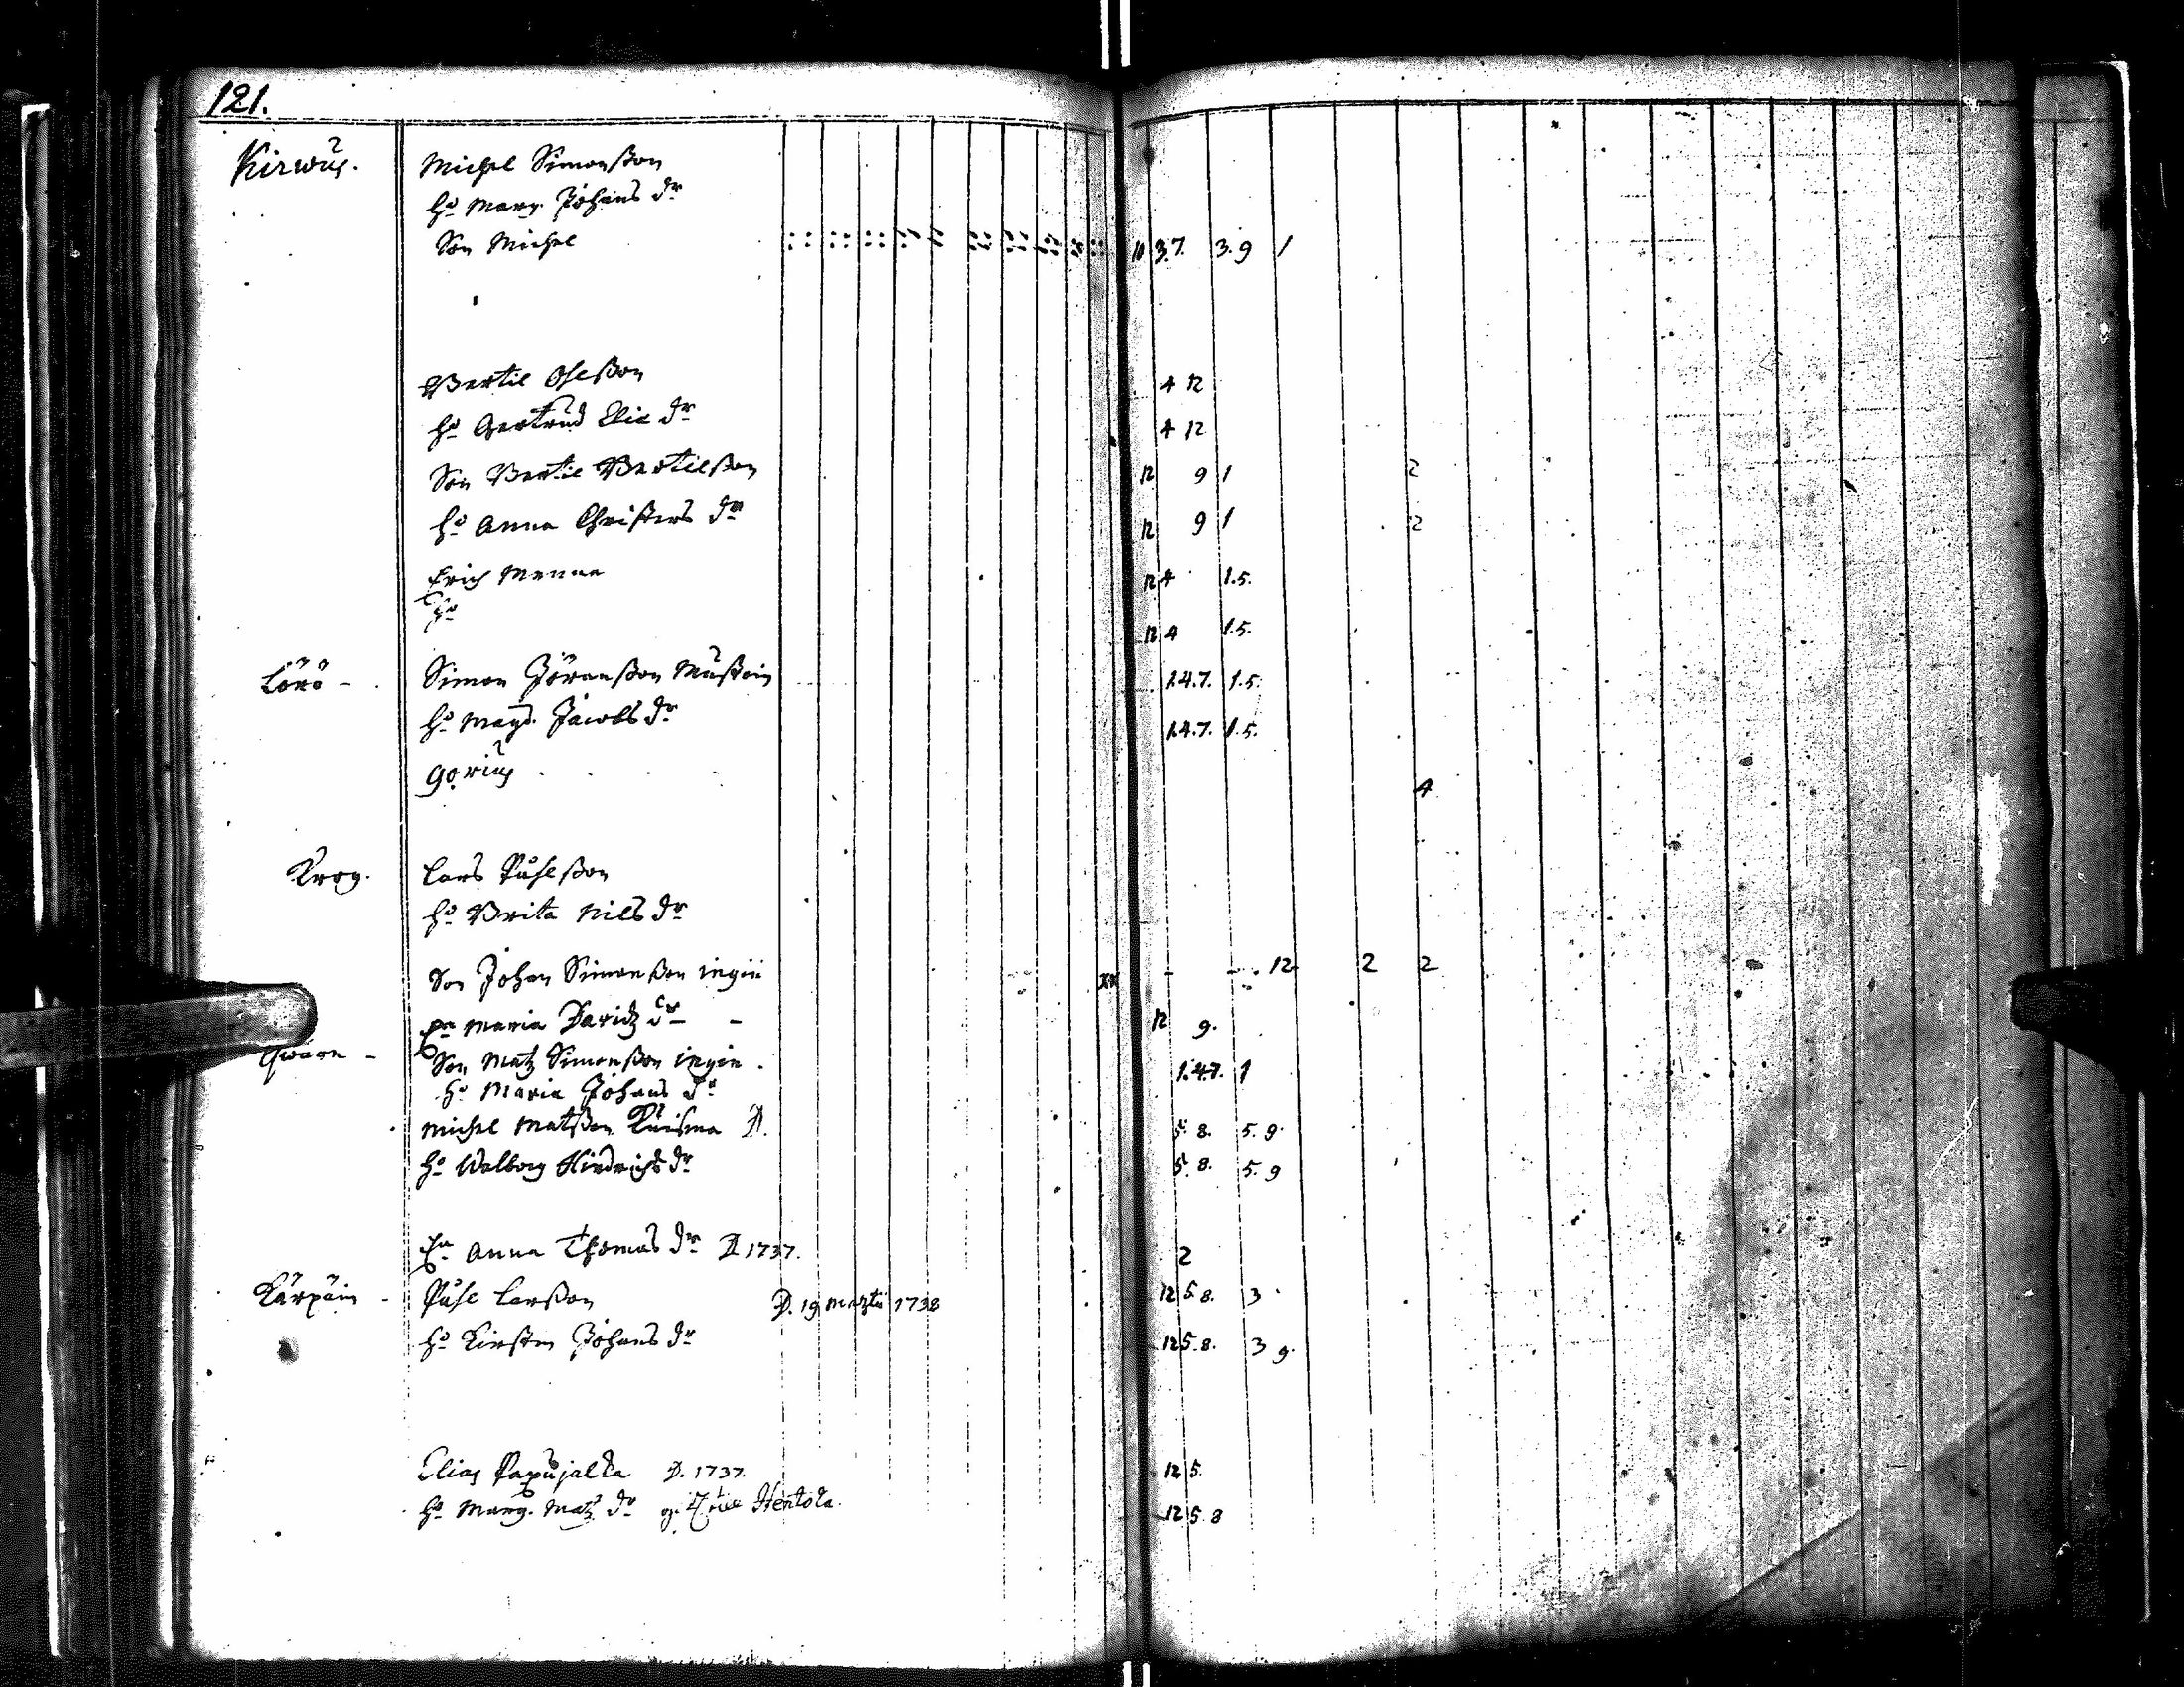 121.
Kirwus. Michel Simonsson
hu Marg. Johans dr
Son Michel :: :: :: :: :: :: :: :: 10 3.7. 3.9 1
Bertil Olesson 4 12
hu Gertrud Elia dr 4 12
Son Bertil Bertilsson 12 9 1 2
hu Anna Christers dr 12 9 1 2
Erich Menna 12 4 1.5.
hu 12 4 1.5.
Lörö - Simon Jöransson Mustoin 1.4.7. 1.5.
hu Magd. Jacobs dr 1.4.7. 1.5.
Gorius 4
Krog. Lars Påhlsson
hu Brita Nils dr
Son Johan Simonsson ingii xx - - 12 2 2
En Maria Davidz dr - 12 9.
Qwarn - Son Matz Simonsson ingin. 1.4.7. 1
hu Maria Johans dr
Michel Matsson Kuisma D. 5. 8. 5. 9.
hu Walborg Hindrichs dr 5. 8. 5. 9
En Anna Thomas dr D 1737. 2
Kärpäin - Påhl Larsson D. 19 Martii 1738 12 5. 8. 3
hu Kirstin Johans dr 12 5. 8. 3 9.
Elias Papujalka D. 1737. 12 5.
hu Marg. Matz dr Hentola. 12 5. 8